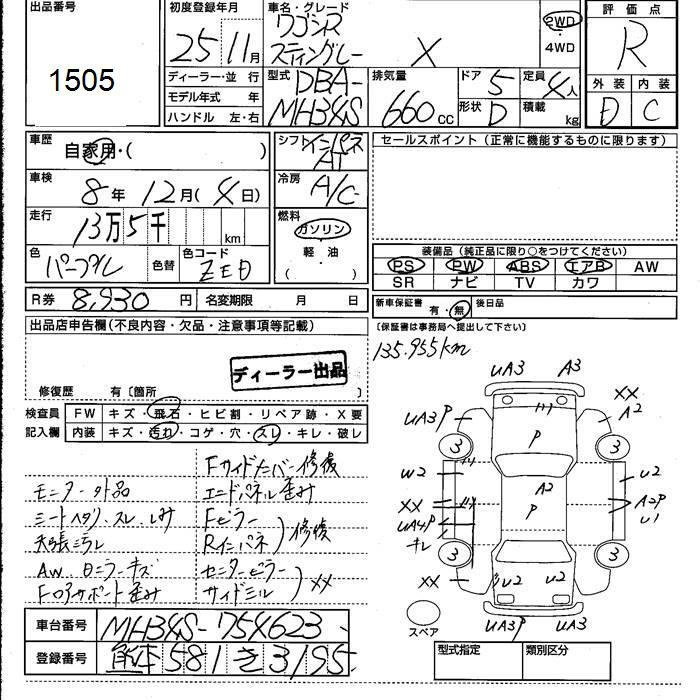 出品番号
1505
初度登録年月
25 11月
車名・グレード
ワゴンR
スティングレー X
2WD
・
4WD
評価点
R
外装 内装
D C
ディーラー・並行
モデル年式 年
ハンドル 左・右
型式 DBA-
MH34S
排気量
660cc
ドア 5
定員 4人
形状 D
積載 kg
車歴
自家用・( )
車検
8年 12月(4日)
走行
13万5千 km
色
パープル 色替
色コード
ZED
シフト インパネ
AT
冷房
A/C
燃料
ガソリン
・
軽油
( )
セールスポイント(正常に機能するものに限ります)
装備品(純正品に限り○をつけてください)
PS PW ABS エアB AW
SR ナビ TV カワ
R券 8,930円 名変期限 月 日
新車保証書 有・無 後日品
(保証書は事務局へ提出して下さい)
135.955km
出品店申告欄(不良内容・欠品・注意事項等記載)
ディーラー出品
修復歴 有〔箇所 〕
検査員 FW キズ・飛石・ヒビ割・リペア跡・X要
記入欄 内装 キズ・汚れ・コゲ・穴・スレ・キレ・破レ
Fサイドメンバー修復
モニター欠品 エンドパネル歪み
シートヘタリ、スレ、しみ Fピラー
天張汚レ Rインパネ 修復
AW、ミラーキズ センターピラー
Fロアサポート歪み サイドシル XX
車台番号 MH34S-754623
登録番号 熊本581き3195
UA3 A3
XX
A2
UA3P
3 P 3
W2 A2 U2
XX P A2P
UA4P U1
キレ
3 3
XX U2 U2
UA3P UA3
スペア
型式指定 類別区分